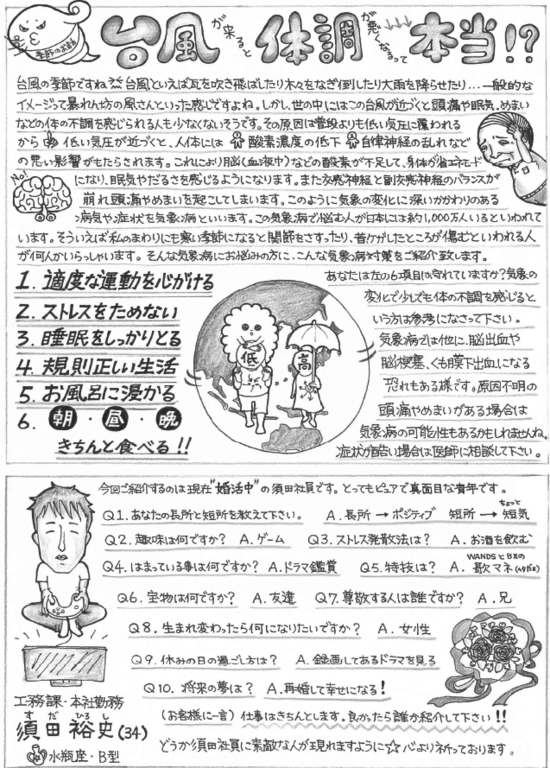 季節のお便り
台風が来ると体調が悪くなるって本当!?
台風の季節ですね 台風といえば瓦を吹き飛ばしたり木々をなぎ倒したり大雨を降らせたり…一般的な
イメージって暴れん坊の風さんといった感じですよね。しかし、世の中にはこの台風が近づくと頭痛や眠気、めまい
などの体の不調を感じられる人も少なくないそうです。その原因は普段よりも低い気圧に覆われる
から 低い気圧が近づくと、人体には 酸素濃度の低下 自律神経の乱れなど
の悪い影響がもたらされます。これにより脳(血液中)などの酸素が不足して、身体が省エネモード
No!
になり、眠気やだるさを感じるようになります。また交感神経と副交感神経のバランスが
崩れ頭痛やめまいを起こしてしまいます。このように気象の変化に深いかかわりのある
病気や症状を気象病といいます。この気象病で悩む人が日本には約1,000万人いるといわれて
います。そういえば私のまわりにも寒い季節になると関節をさすったり、昔ケガしたところが傷むといわれる人
が何人かいらっしゃいます。そんな気象病にお悩みの方に、こんな気象病対策をご紹介致します。
1. 適度な運動を心がける
2. ストレスをためない
3. 睡眠をしっかりとる
4. 規則正しい生活
5. お風呂に浸かる
6. 朝・昼・晩
きちんと食べる!!
低
高
あなたは左の6項目は守れていますか?気象の
変化で少しでも体の不調を感じると
いう方は参考になさって下さい。
気象病とは他に、脳出血や
脳梗塞、くも膜下出血になる
恐れもある様です。原因不明の
頭痛やめまいがある場合は
気象病の可能性もあるかもしれませんね。
症状が酷い場合は医師に相談して下さい。
今回ご紹介するのは現在"婚活中"の須田社員です。とってもピュアで真面目な青年です。
Q1. あなたの長所と短所を教えて下さい。 A. 長所→ポジティブ 短所→短気
ちょっと
Q2. 趣味は何ですか? A. ゲーム Q3. ストレス発散法は? A. お酒を飲む
Q4. はまっている事は何ですか? A. ドラマ鑑賞 Q5. 特技は? A. 歌マネ
WANDSとB'zの
Q6. 宝物は何ですか? A. 友達 Q7. 尊敬する人は誰ですか? A. 兄
Q8. 生まれ変わったら何になりたいですか? A. 女性
Q9. 休みの日の過ごし方は? A. 録画してあるドラマを見る
Q10. 将来の夢は? A. 再婚して幸せになる!
(お客様に一言) 仕事はきちんとします。良かったら誰か紹介して下さい!!
どうか須田社員に素敵な人が現れますように☆心より祈っております。
工務課・本社勤務
すだ ひろし
須田 裕史(34)
水瓶座・B型